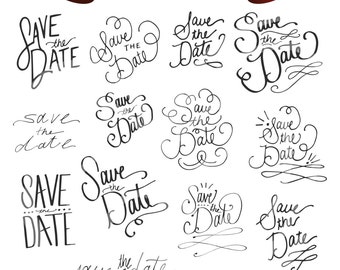 SAVE
the
DATE
Save
THE
Date
Save
the
Date
Save
the
Date
save
the
date
Save
the
Date
Save
the
Date
Save
the
Date
SAVE
the
DATE
Save
the
Date
Save
the
Date
Save
the
Date
save the date